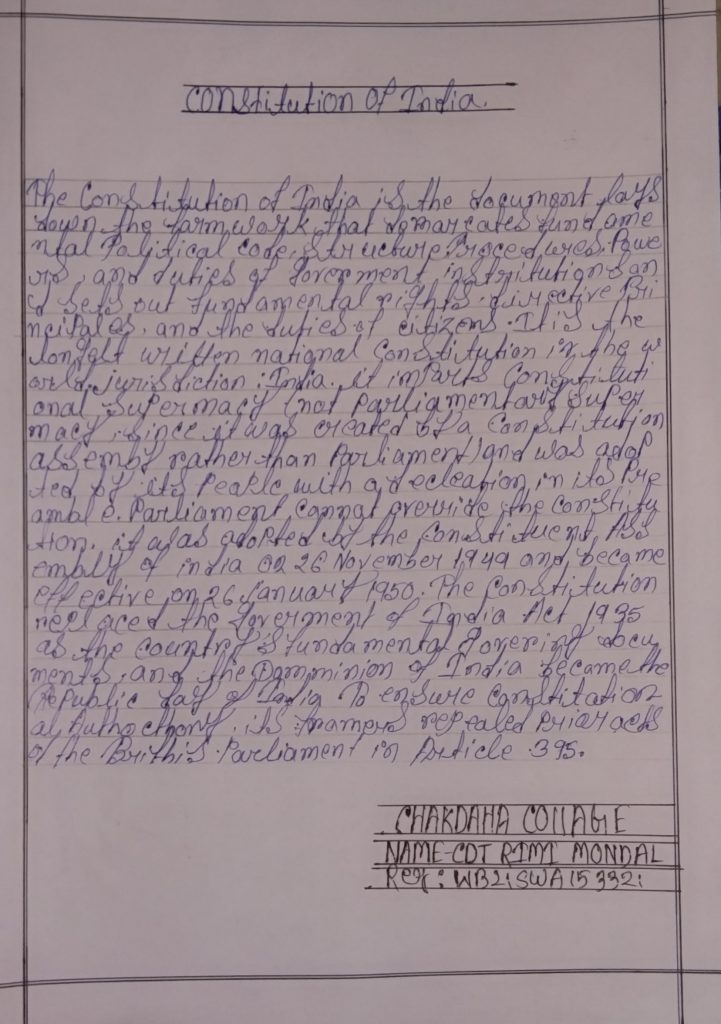 Constitution of India.
The Constitution of India is the document lays
down the farmwork that demarcates fundame
ntal Political code, structure Procedures, Powe
rs, and duties of Goverment institutions an
d sets out fundamental rights, directive Pri
ncipales, and the duties of citizens. It is the
longest written national Constitution in the w
orld, jurisdiction: India. it imparts Constituti
onal supermacy (not Parliamentary super
macy, since it was created by a Constitution
assemby rather than Parliament) and was adop
ted by its Peaple with a decleation in its Pre
amble. Parliament cannot override the constitu
tion. it was adopted by the Constituent Ass
embly of india on 26 November 1949 and became
effective on 26 January 1950. The Constitution
replaced the Goverment of India Act 1935
as the country's fundamental Govering docu
ments, and the Domminion of India became the
Republic day of India To ensure Constitation
al Authocthony, its framers repealed Prior acts
of the Brithis Parliament in Article 395.
CHAKDAHA COllAGE
NAME-CDT RIMI MONDAL
Reg: WB21SWA153321